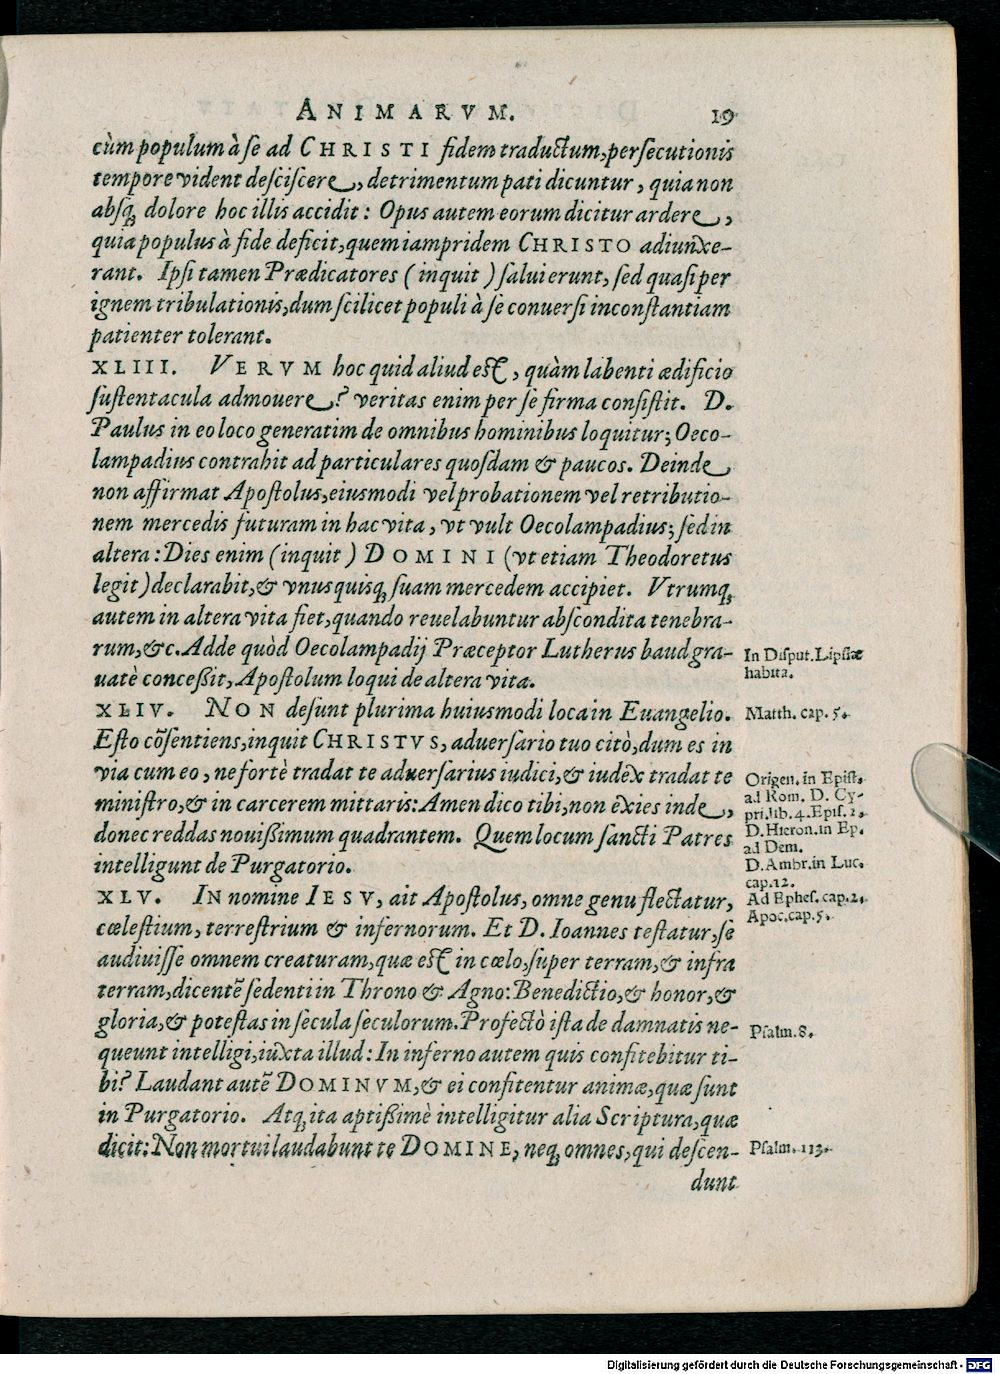 ANIMARVM. 19
cùm populum à se ad CHRISTI fidem traductum, persecutionis
tempore vident desciscere, detrimentum pati dicuntur, quia non
absq; dolore hoc illis accidit: Opus autem eorum dicitur ardere,
quia populus à fide deficit, quem iampridem CHRISTO adiunxe-
rant. Ipsi tamen Prædicatores (inquit) salui erunt, sed quasi per
ignem tribulationis, dum scilicet populi à se conuersi inconstantiam
patienter tolerant.
XLIII. VERVM hoc quid aliud est, quàm labenti ædificio
sustentacula admouere? veritas enim per se firma consistit. D.
Paulus in eo loco generatim de omnibus hominibus loquitur; Oeco-
lampadius contrahit ad particulares quosdam & paucos. Deinde
non affirmat Apostolus, eiusmodi vel probationem vel retributio-
nem mercedis futuram in hac vita, vt vult Oecolampadius; sed in
altera: Dies enim (inquit) DOMINI (vt etiam Theodoretus
legit) declarabit, & vnusquisq; suam mercedem accipiet. Vtrumq;
autem in altera vita fiet, quando reuelabuntur abscondita tenebra-
rum, &c. Adde quòd Oecolampadij Præceptor Lutherus haud gra-
uatè conceßit, Apostolum loqui de altera vita.
In Disput. Lipsiæ
habita.
XLIV. NON desunt plurima huiusmodi loca in Euangelio.
Esto cõsentiens, inquit CHRISTVS, aduersario tuo citò, dum es in
via cum eo, ne fortè tradat te aduersarius iudici, & iudex tradat te
ministro, & in carcerem mittaris: Amen dico tibi, non exies inde,
donec reddas nouißimum quadrantem. Quem locum sancti Patres
intelligunt de Purgatorio.
Matth. cap. 5.
Origen. in Epist.
ad Rom. D. Cy-
pri. lib. 4. Epis. 2.
D. Hieron. in Ep.
ad Dem.
D. Ambr. in Luc.
cap. 12.
XLV. IN nomine IESV, ait Apostolus, omne genu flectatur,
cœlestium, terrestrium & infernorum. Et D. Ioannes testatur, se
audiuisse omnem creaturam, quæ est in cœlo, super terram, & infra
terram, dicentẽ sedenti in Throno & Agno: Benedictio, & honor, &
gloria, & potestas in secula seculorum. Profectò ista de damnatis ne-
queunt intelligi, iuxta illud: In inferno autem quis confitebitur ti-
bi? Laudant autẽ DOMINVM, & ei confitentur animæ, quæ sunt
in Purgatorio. Atq; ita aptißimè intelligitur alia Scriptura, quæ
dicit: Non mortui laudabunt te DOMINE, neq; omnes, qui descen-
dunt
Ad Ephes. cap. 2.
Apoc. cap. 5.
Psalm. 8.
Psalm. 113.
Digitalisierung gefördert durch die Deutsche Forschungsgemeinschaft - DFG